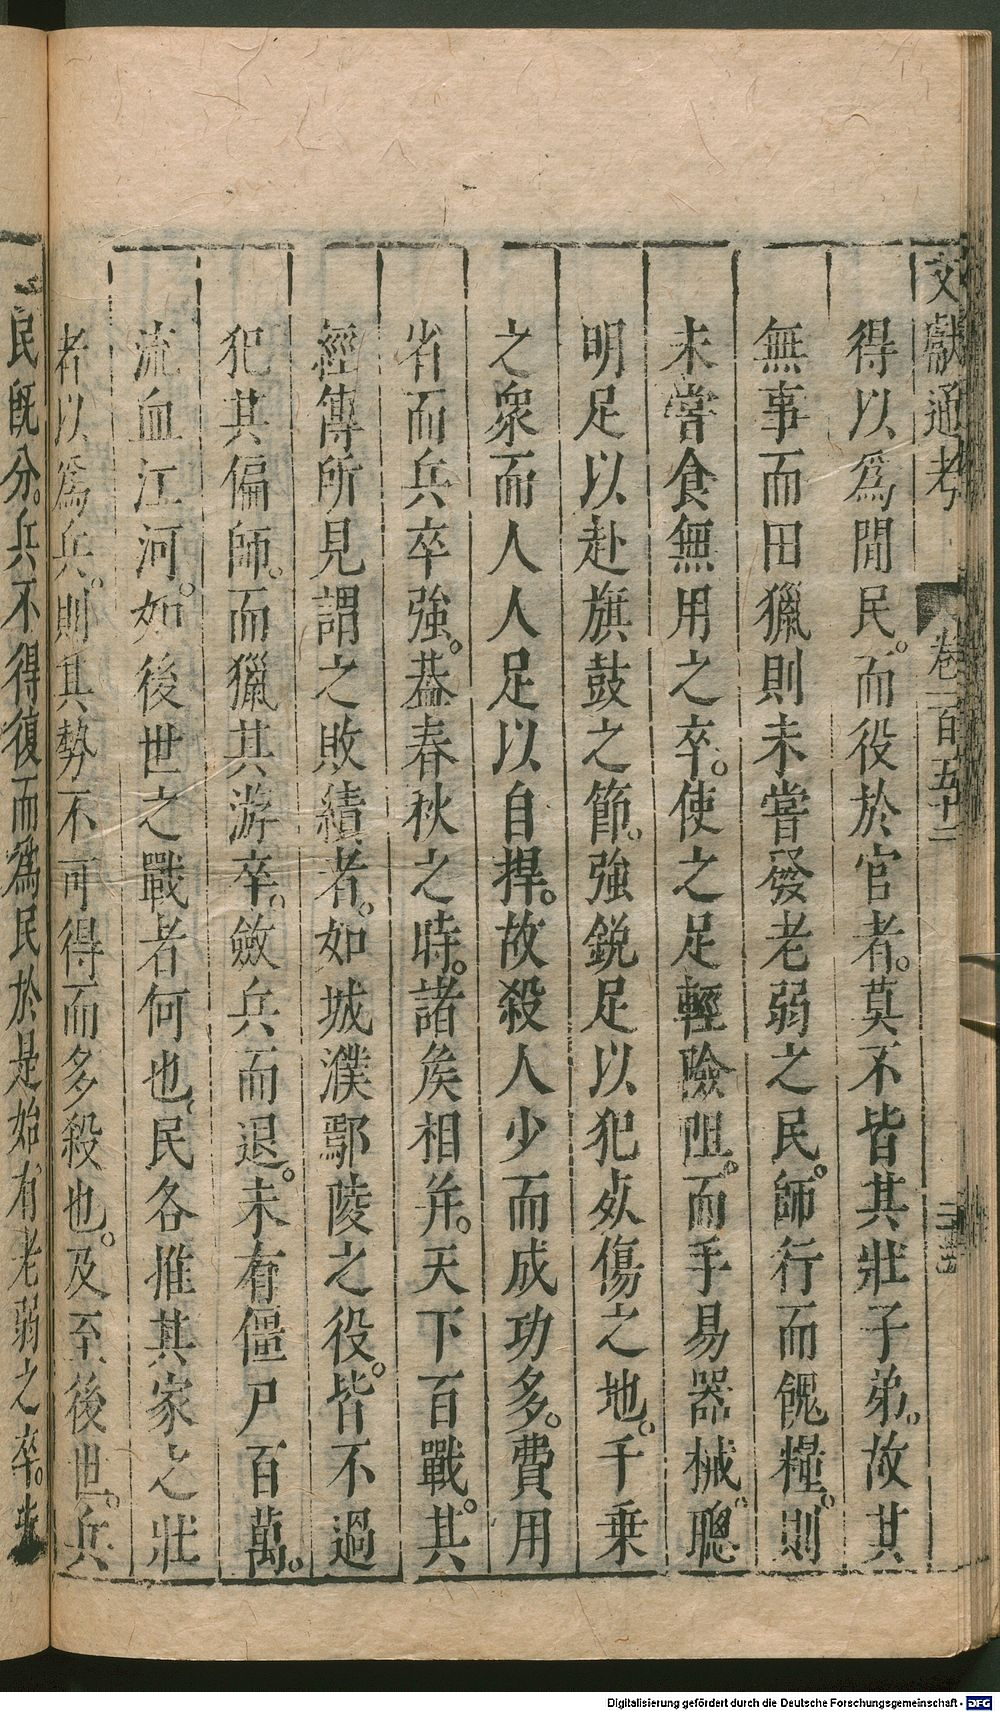 文獻通考 卷一百五十二 三
得以爲閒民。而役於官者。莫不皆其壯子弟。故其
無事而田獵則未嘗發老弱之民。師行而餽糧。則
未嘗食無用之卒。使之足輕險阻。而手易器械。聰
明足以赴旗鼓之節。強銳足以犯死傷之地。千乗
之衆而人人足以自捍。故殺人少而成功多。費用
省而兵卒強。葢春秋之時。諸矦相并。天下百戰。其
經傳所見謂之敗績者。如城濮鄢陵之役。皆不過
犯其偏師。而獵其游卒。斂兵而退。未有僵尸百萬。
流血江河。如後世之戰者何也。民各推其家之壯
者以爲兵。則其勢不可得而多殺也。及至後世。兵
民旣分。兵不得復而爲民於是始有老弱之卒。
Digitalisierung gefördert durch die Deutsche Forschungsgemeinschaft - DFG